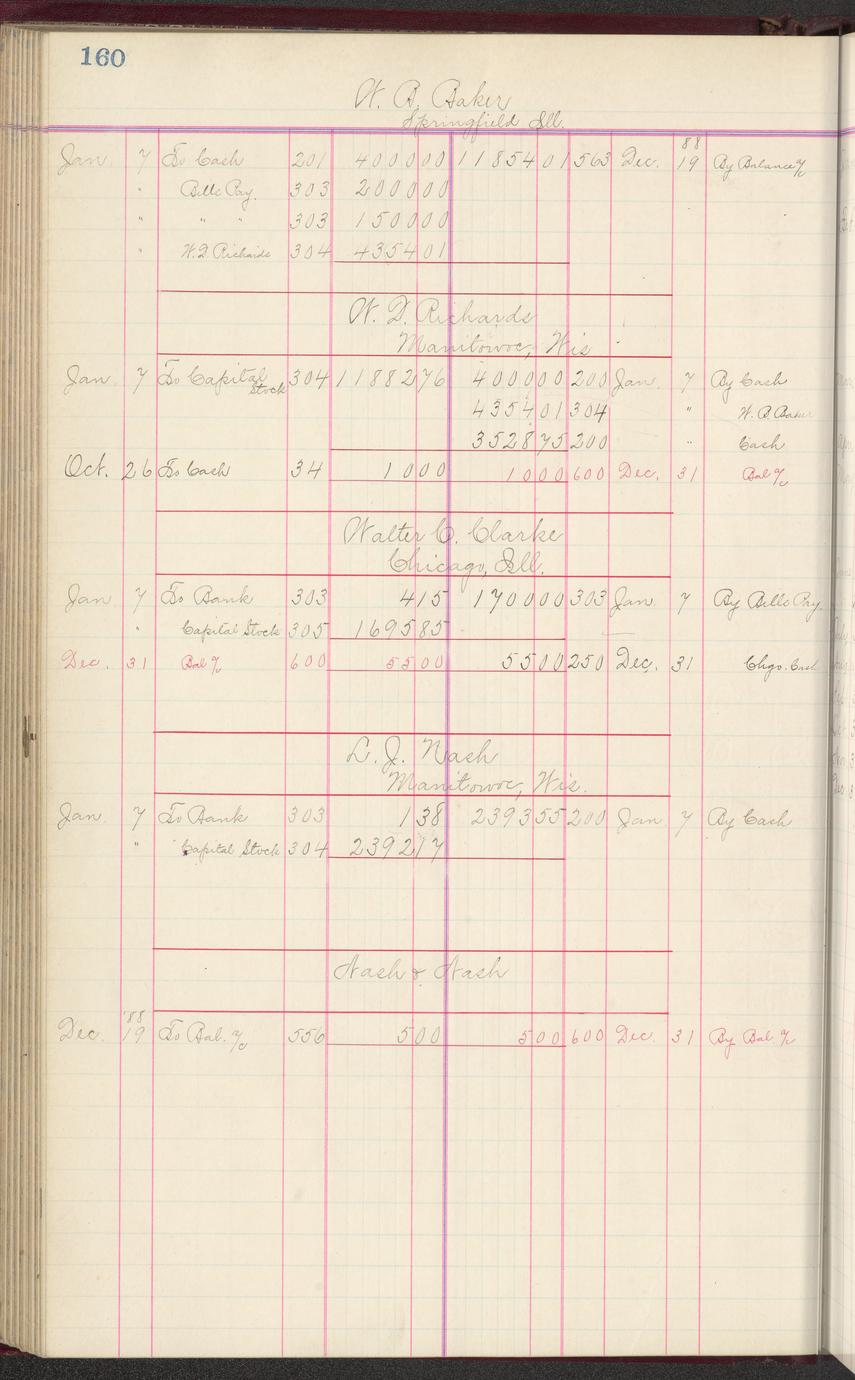 160
W. B. Baker
Springfield Ill.
88
Jan. 7 To Cash 201 4000 00 11854 01 563 Dec. 19 By Balance a/c
" Bills Pay. 303 2000 00
" " " 303 1500 00
" W. D. Richards 304 4354 01
W. D. Richards
Manitowoc, Wis
Jan 7 To Capital Stock 304 11882 76 4000 00 200 Jan. 7 By Cash
4354 01 304 " W. B. Baker
3528 75 200 " Cash
Oct. 26 To Cash 34 10 00 10 00 600 Dec. 31 Bal a/c
Walter C. Clarke
Chicago, Ill.
Jan 7 To Bank 303 4 15 1700 00 303 Jan 7 By Bills Pay.
" Capital Stock 305 1695 85
Dec. 31 Bal a/c 600 55 00 55 00 250 Dec. 31 Chgo. Cash
L. J. Nash
Manitowoc, Wis.
Jan. 7 To Bank 303 1 38 2393 55 200 Jan 7 By Cash
" Capital Stock 304 2392 17
Nash & Nash
'88
Dec. 19 To Bal. a/c 556 5 00 5 00 600 Dec. 31 By Bal. a/c